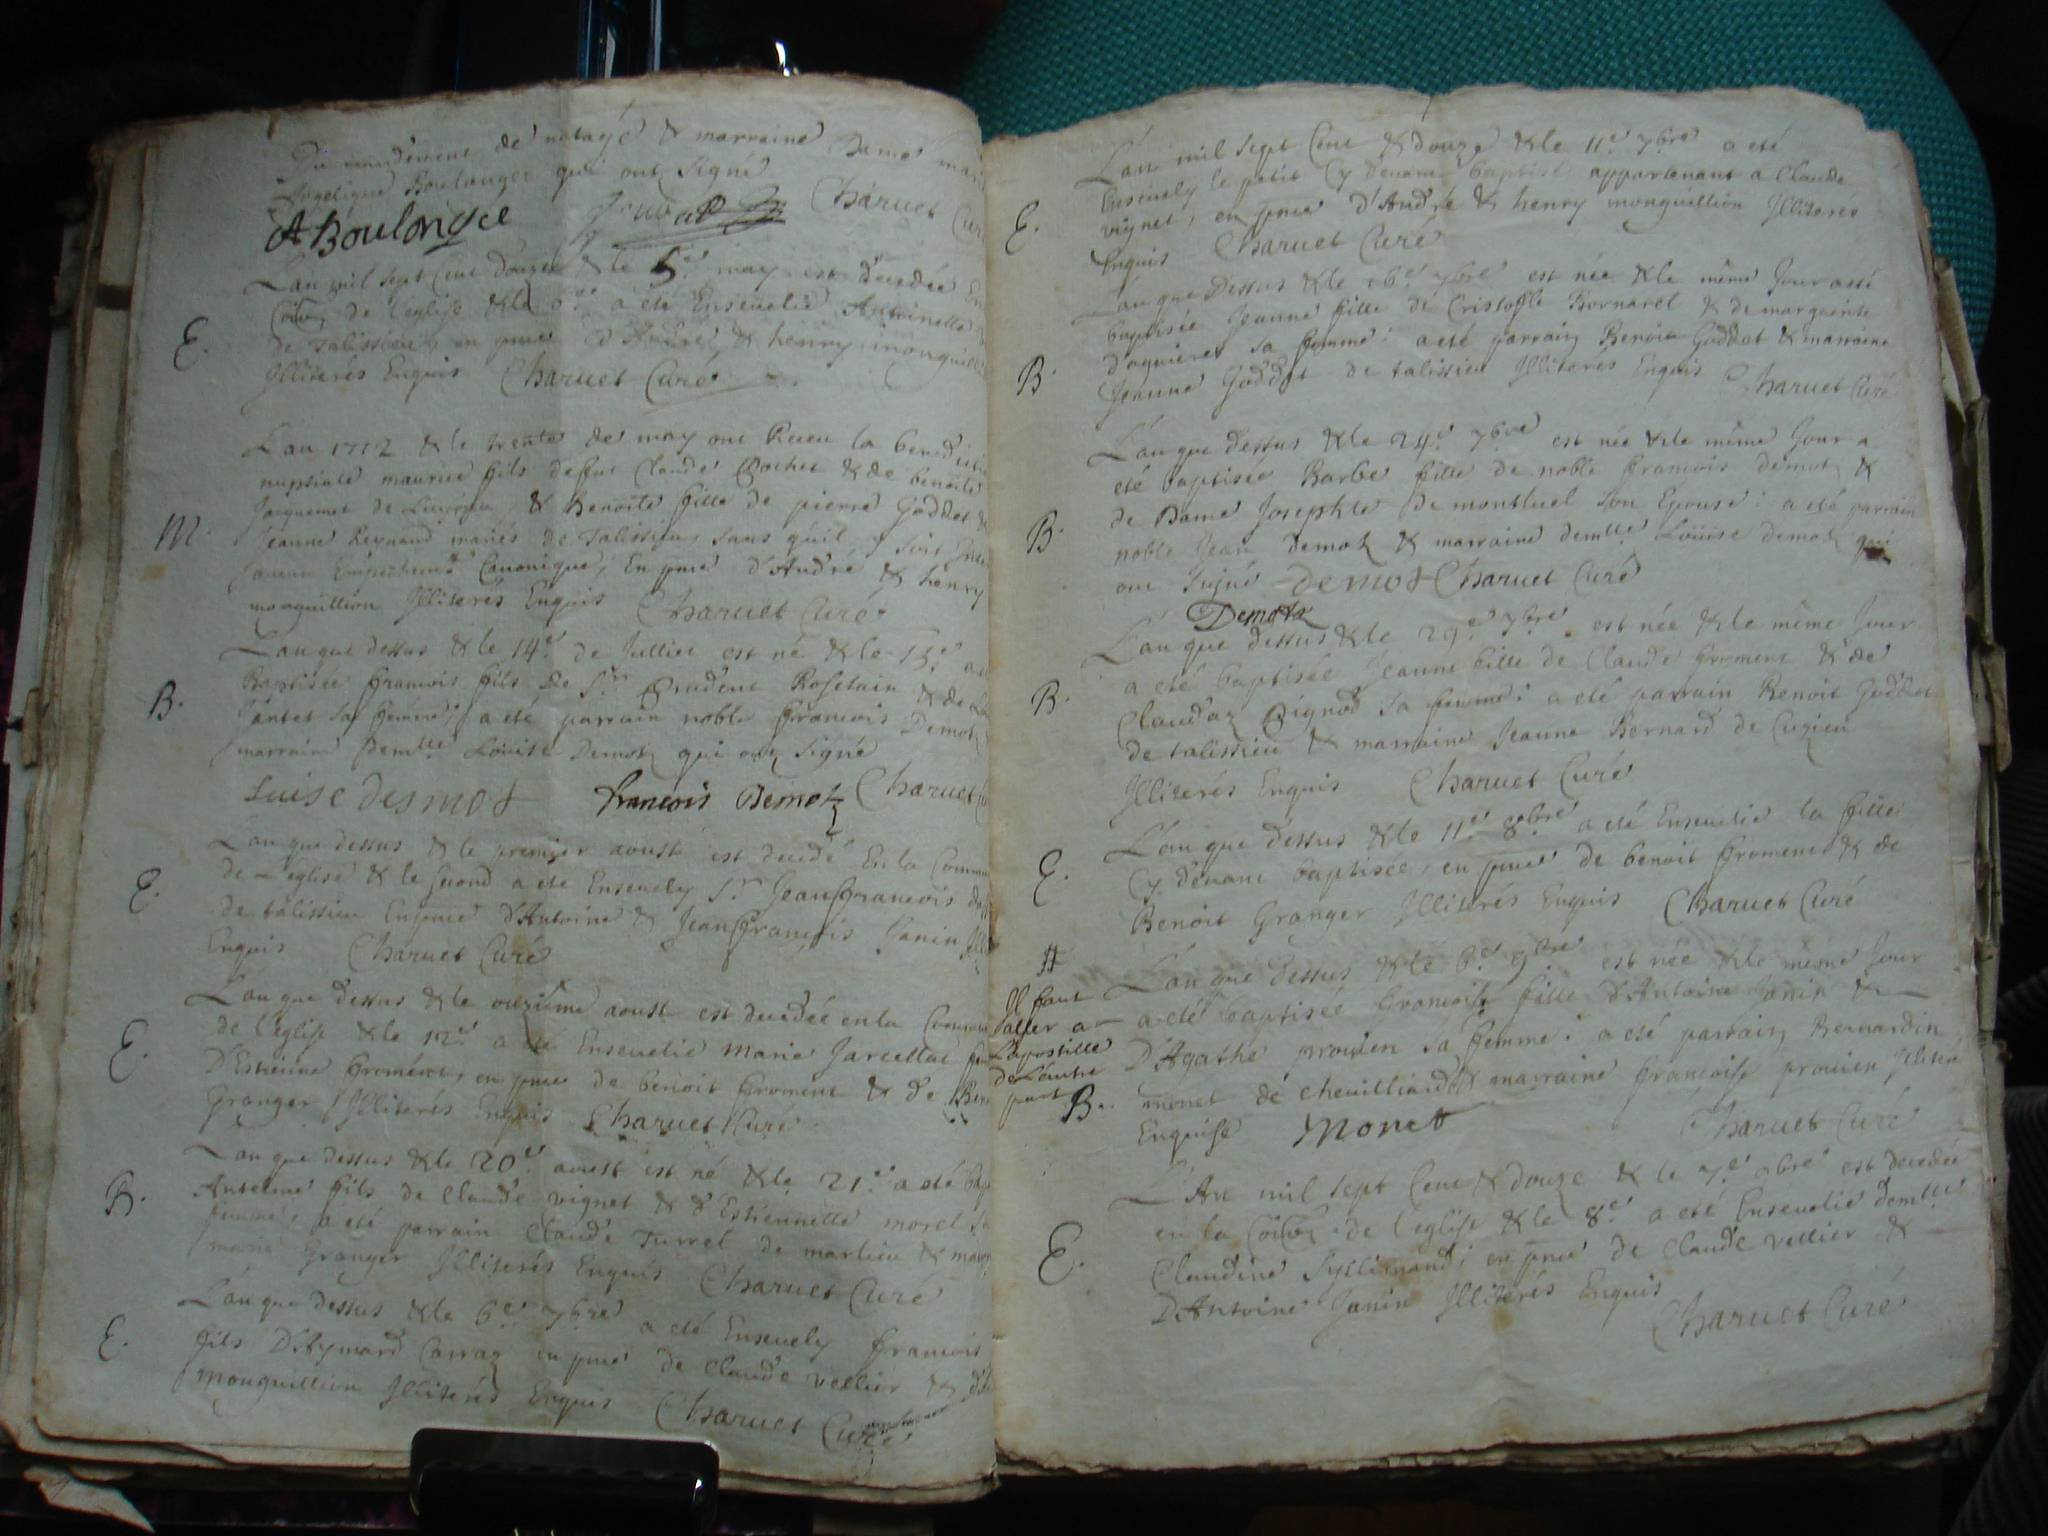 Du mandement de nattage & marraine Dame
Angelique Boulanger qui ont signé
ABoulongée Charuet Curé
L'an mil sept cent douze & le 5e may est decedée En
Com de l'eglise & le a été Ensevelie Antoinette
E. de talissieu, en pnce d'André & henry monguillion
Illiterés Enquis Charuet Curé
L'an 1712 & le trente de may ont Receu la benediction
nuptiale maurice fils deffut Claude Bochet & de benoite
Jacquemet de & benoite fille de pierre Goddet &
M. Jeanne Reynaud mariés de Talissieu, sans qu'il y soit
aucun Empechemt Canonique, En pnce d'André & henry
monguillion Illiterés Enquis Charuet Curé
L'an que dessus & le 14e de Juillet est né & le 15e a
B. Baptisée francois fils de Sr prudent Rostain & de
Jantet sa femme; a été parrain noble francois Demotz
marraine Demlle Louise Demotz qui ont signé
Luise desmot francois Demotz Charuet
L'an que dessus & le premier aoust est decedé En la Commu
E. de L'eglise & le second a été Ensevely Sr Jeanfrancois
de talissieu En pnce d'Antoine & Jeanfrançois Janin
Enquis Charuet Curé
L'an que dessus & le onzième aoust est decedée en la Commu
E. de l'eglise & le 12e a été Ensevelie marie Jarcellat
D'Estienne froment, en pnce de benoit froment & de Ben
Granger Illiterés Enquis Charuet Curé
L'an que dessus & le 20e aoust est né & le 21e a été bap
B. Antelme fils de Claude vignet & d'Estiennette morel sa
femme, a été parrain Claude Turrel de marlieu & marr
marie Granger Illiterés Enquis Charuet Curé
L'an que dessus & le 6e 7bre a été Ensevely francois
E. fils D'Aymard Carraz en pnce de Claude vellier &
Monguillion Illiterés Enquis Charuet Curé
L'an mil sept Cent & douze & le 11e 7bre a été
Ensevely le petit Cy devant baptisé appartenant a Claude
E. vignet, en pnce d'André & henry monguillion Illiterés
Enquis Charuet Curé
L'an que Dessus & le 16e 7bre est née & le même Jour a eté
baptisée Jeanne fille de Cristofle Bornarel & de marguerite
B. d'aquieres sa femme: a été parrain Benoit Goddet & marraine
Jeanne Goddet de talissieu Illiterés Enquis Charuet Curé
L'an que dessus & le 24e 7bre est née & le même Jour a
été baptisée Barbe fille de noble francois demotz &
B. de Dame Josephte de montluel son Epouse: a été parrain
noble Jean demotz & marraine demlle Loüise demotz qui
ont signé Demotz Charuet Curé
Demotz
L'an que dessus & le 29e 7bre est née & le même Jour
B. a été baptisée Jeanne fille de Claude froment & de
Claudaz Pignod sa femme: a été parrain Benoit Goddet
de talissieu & marraine Jeanne Bernard de Cuzieu
Illiterés Enquis Charuet Curé
L'an que dessus & le 11e 8bre a été Ensevelie la fille
E. Cy devant baptisée, en pnce de benoit froment & de
Benoit Granger Illiterés Enquis Charuet Curé
#
Il faut
aller a
Lapostille
de L'autre
part
L'an que dessus & le 6e 9bre est née & le même Jour
a été baptisée francoise fille d'Antoine Janin &
D'Agathe prouven sa femme: a été parrain Bernardin
B. monet de cheuilliard & marraine francoise prouven Illiteré
Enquise Monet Charuet Curé
L'An mil sept Cent & douze & le 7e 9bre est decedée
en la Com de l'eglise & le 8e a été Ensevelie demlle
E. Claudine Syllimand; en pnce de Claude vellier &
D'Antoine Janin Illiterés Enquis
Charuet Curé